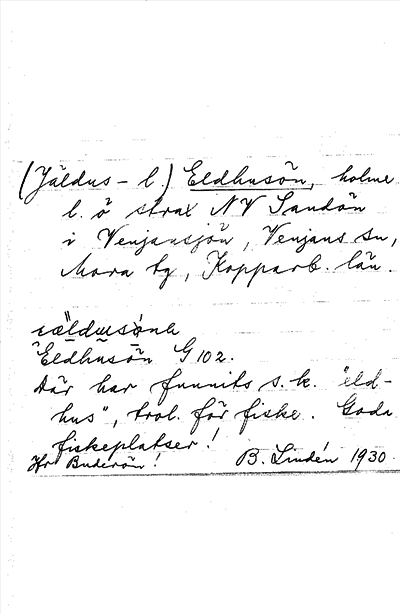 (Jäldus- l.) Eldhusön, holme
l. ö strax NV Sandön
i Venjansjön, Venjans sn,
Mora tg, Kopparb. län.
Eldhusön G 102.
där har funnits s.k. "eld-
hus", trol. för fiske. Goda
fiskeplatser!
Jfr Buderön! B. Lindén 1930.